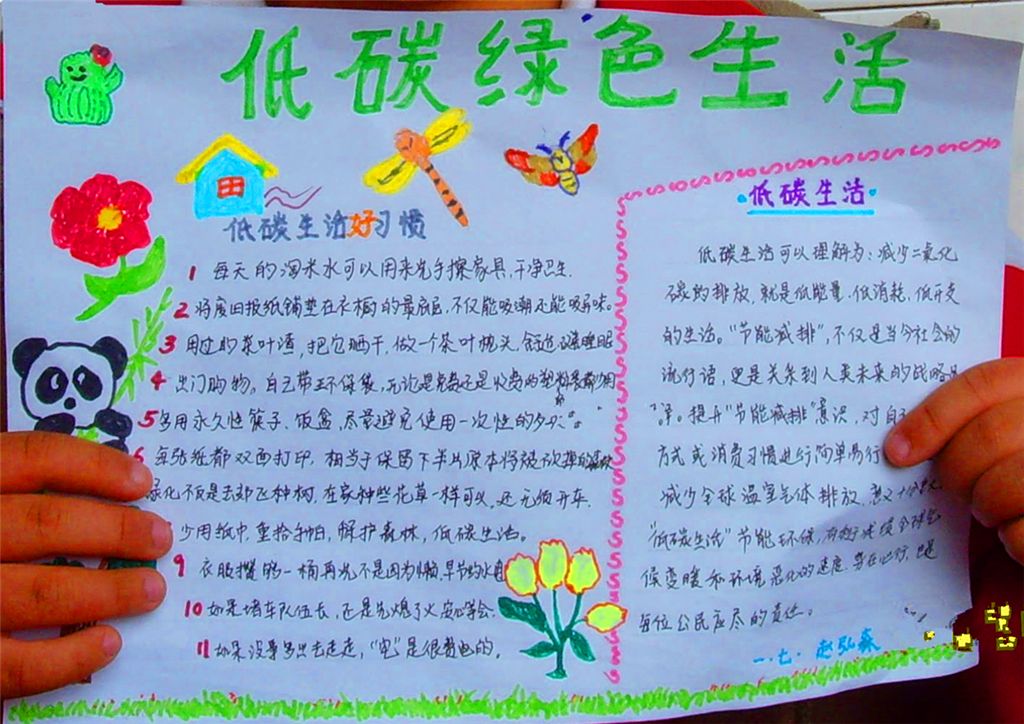 低碳绿色生活
低碳生活好习惯
1 每天的淘米水可以用来洗手擦家具,干净卫生.
2 将废旧报纸铺垫在衣橱的最底层,不仅能吸潮还能吸异味。
3 用过的茶叶渣,把它晒干,做一个茶叶枕头,舒适
4 出门购物。自己带环保袋,无论是免费还是收费的塑料袋都
5 多用永久性筷子、饭盒,尽量避免使用一次性的
6 每张纸都双面打印,相当于保留下半片原本将被砍掉的
绿化不仅是去郊区种树,在家种些花草一样可以,还无须开车.
少用纸巾,重拾手帕,保护森林,低碳生活。
9 衣服攒够一桶再洗不是因为懒,是节约水电
10 如果堵车队伍长,还是先熄了火安心等会.
11 如果没事多出去走走,“宅”是很费电的。
低碳生活
低碳生活可以理解为:减少二氧化
碳的排放,就是低能量、低消耗、低开支
的生活。“节能减排”,不仅是当今社会的
流行语,更是关系到人类未来的战略
提升“节能减排”意识,对自
方式或消费习惯进行简单易行
减少全球温室气体排放,意义十分
“低碳生活”节能环保,有利于减缓全球气
候变暖和环境恶化的速度,势在必行,也是
每位公民应尽的责任。
一.七. 赵弘森